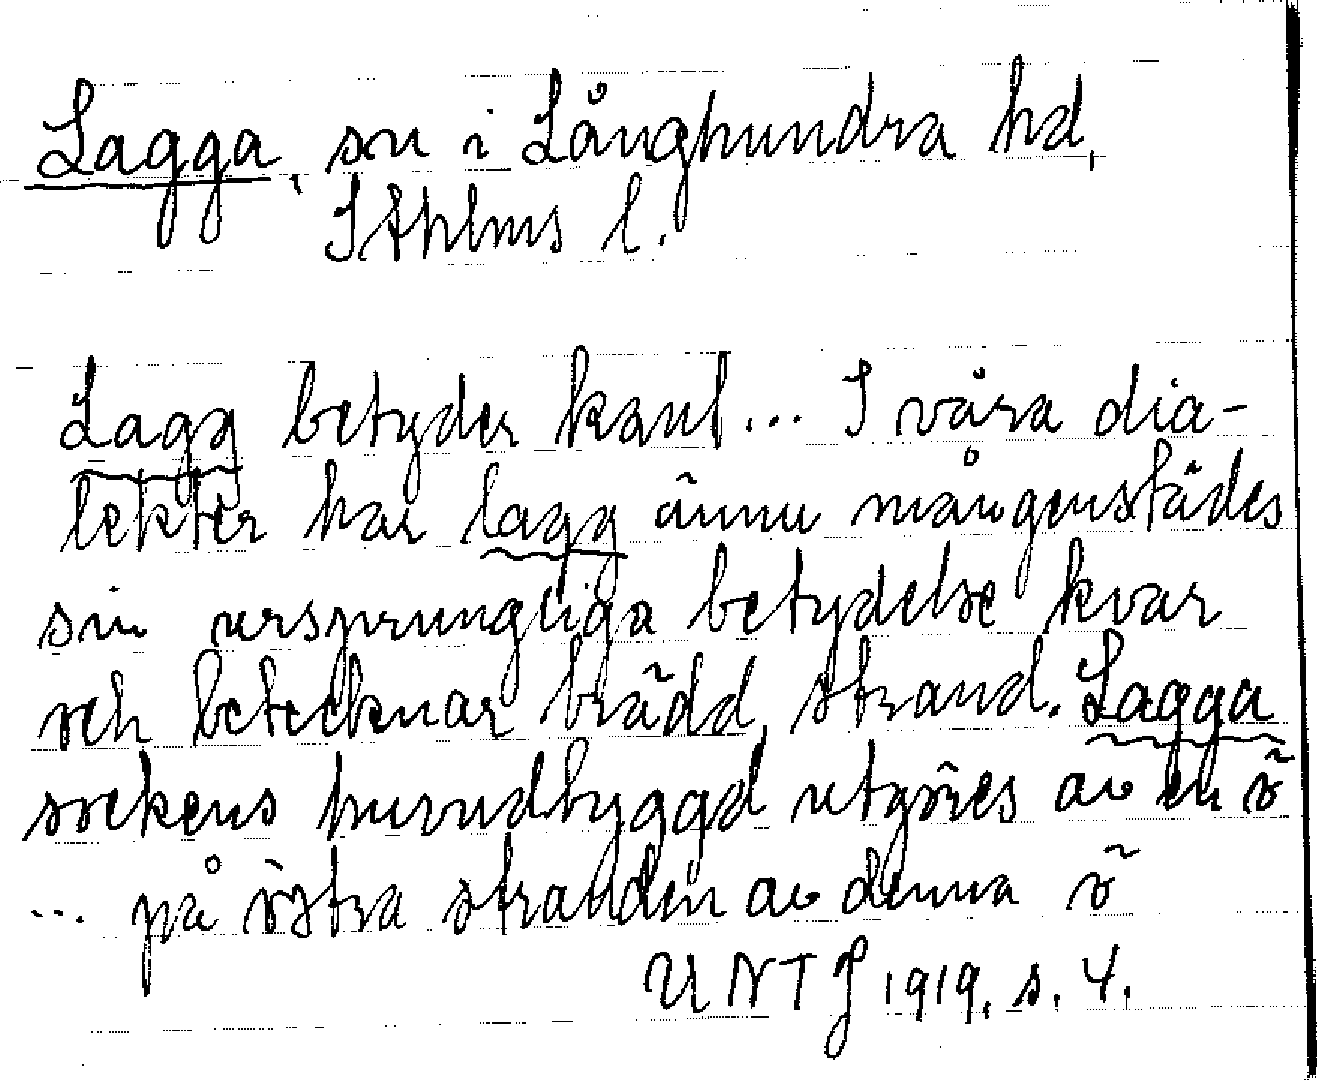 Lagga, sn i Långhundra hd,
Sthlms l.
Lagg betyder kant... I våra dia-
lekter har lagg ännu mångenstädes
sin ursprungliga betydelse kvar
och betecknar brädd, strand. Lagga
sockens huvudbyggd utgöres av en ö
... på östra stranden av denna ö
UNT J 1919, s. 4.